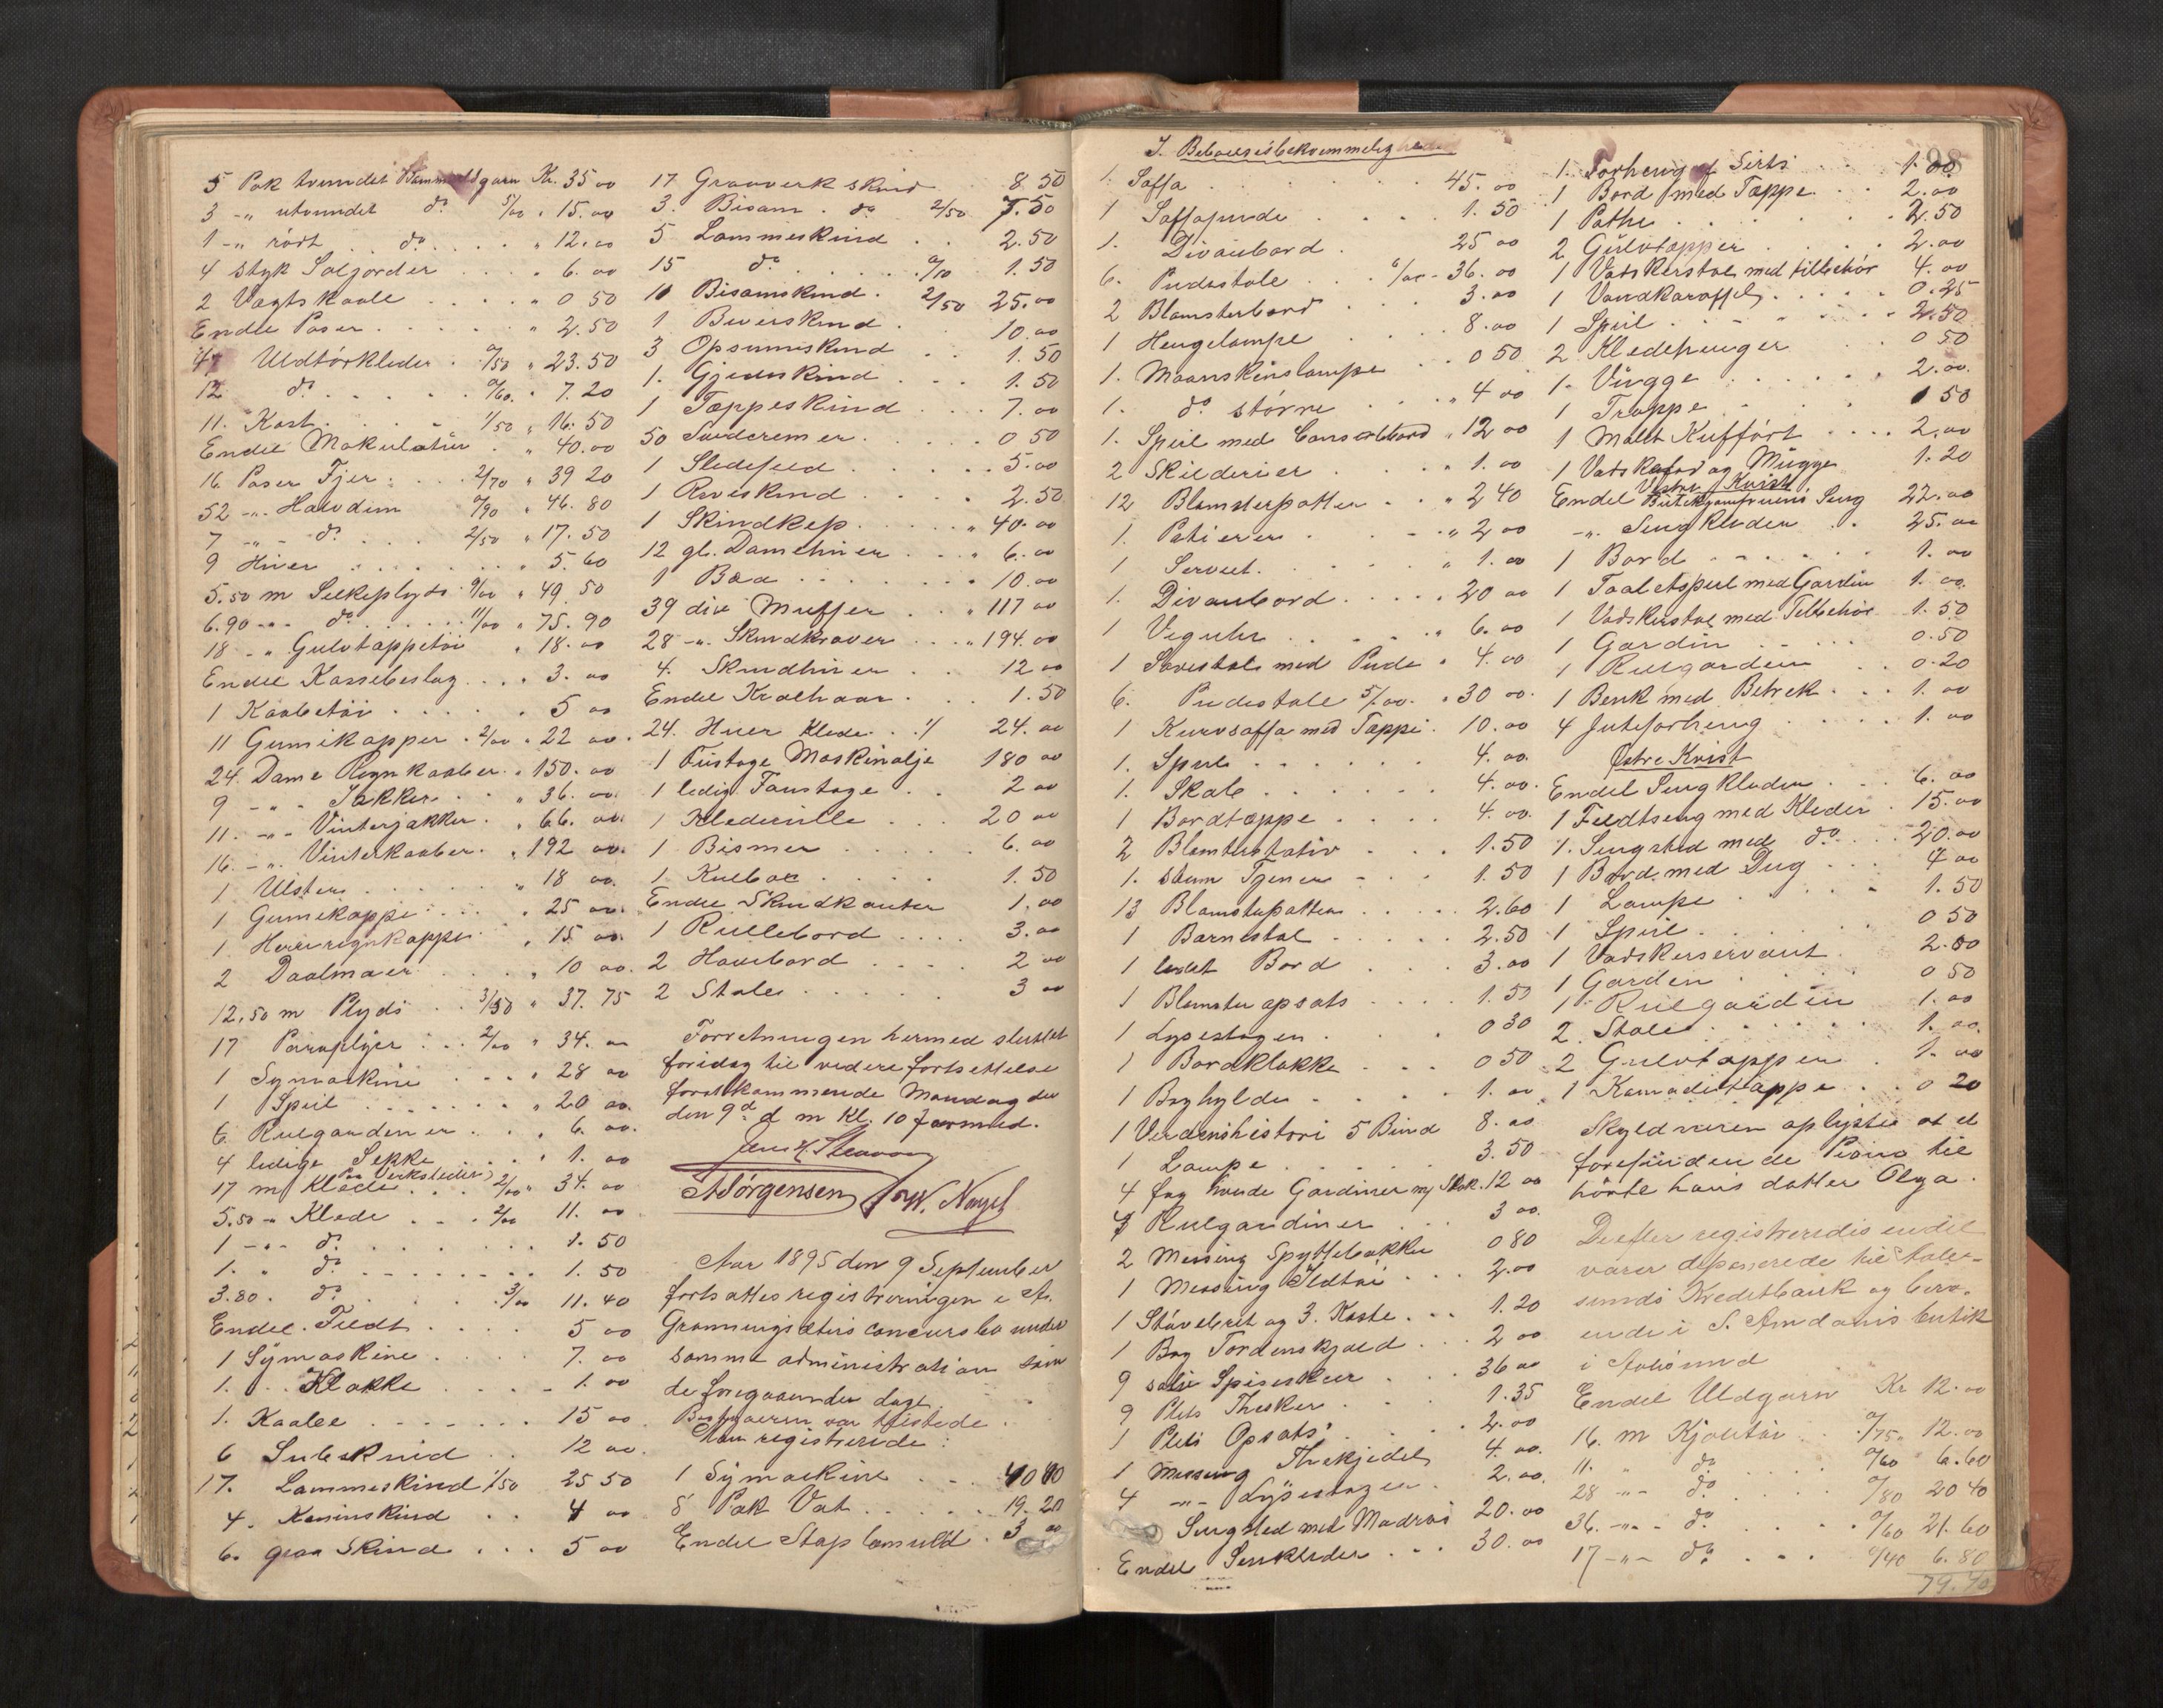 5 Pak tvundet Bommuldsgarn Kr. 35 00
3 -"- utvundet do 5/00 " 15.00
1 -"- rødt . do . . . . " 12.00
4 styk Saljorder . . . " 6.00
2 Vægtskaale . . . . " 0 50
Endel Poser . . . . . " 2.50
47 Uldtørkleder . 0/50 " 23.50
12. do . . . . . 0/60. " 7.20
11. Kost . . . . 1/50 " 16.50
Endel Makulatur . " 40.00
16 Poser Fjer . . . 2/70 " 39 20
52 -"- Halvdun 0/90 " 46.80
7 -"- do . . . 2/50 " 17.50
9 Huer . . . . . . " 5.60
5.50 m Silkeplyds 9/00 " 49.50
6.90 -"- do . . . . 11/00 " 75.90
18 -"- Gulvtappetøi " 18.00
Endel Kassebeslag . . . " 3.00
1 Kaabetøi . . . . . " 5 00
11 Gumikapper . 2/00 " 22 00.
24. Dame Regnkaaber . " 150.00
9 -"- Jakker . . " 36.00
11. -"- Vinterjakker . " 66.00.
16 -"- Vinterkaaber . " 192 00.
1 Ulster . . . . . " 18 00.
1 Gumikappe . . . . " 25 00.
1. Herreregnkappe . " 15 00.
2 Daalmaer . . . . " 10 00.
12,50 m Plyds . . 3/50 " 37.75
17 Paraplyer . . . 2/00 " 34.00
1 Symaskine . . . " 28 00
1 Speil . . . . . . . " 20 00.
6 Rulgardiner . . . " 6.00.
4 ledige Sekke . . . " 1.00
17 m Klæde (Paa Verkstedet) 2/00 " 34.00
5.50 -"- Klæde . . 2/00 11.00
1 -"- do . . . . . . . 1.50
1. " do . . . . . . . 1.50
3.80. do . . . . . 3/00 11.40
Endel. Fildt . . . . 5 00
1 Symaskine . . . . 7.00
1. . . Klokke . . . . 1.00
1. Kaalee . . . . . . 15 00
6 . . . 12 00.
17. Lammeskind 1/50 25 50
4. Kaninskind . . 4 00
6. graa Skind . . . 5 00
17 Graaverk skind . 8 50
3. Bisam . do 2/50 7.50
5 Lammeskind . . 2.50
15 do . . . . . 0/10 1.50
10 Bisamskind . 2/50 25.00
1 Beverskind . . 10.00
3 Opsumskind . . 1.50
1. Gjedeskind . . . 1.50
1 Tæppeskind . . . 7.00
50 . . . . . 0 50
1 Sledefeld . . . . . 5.00
1 Reveskind . . . . 2.50
1 Skindkep . . . . " 40.00
12 gl. Damehuer . . . " 6.00
1 Boa . . . . . . . " 10.00
39 div Muffer . . . " 117 00
28 -"- Skindkraver . . . " 194.00
4. Skindhuer . . 12 00
Endel Krølhaar . . . 1.50
24. Huer Klede . . 1/ 24.00
1 Fustage Maskinolje 180 00
1 ledig Faustage . . 2 00
1 Klederulle . . . 20 00
1 Bismer . . . . . 6.00
1 . . . . 1.50
Endel Skindkanter 1.00
1 Rullebord . . . . 3.00
2 Havebord . . . . 2 00
2 Stole . . . . . . 3 00
Forretningen hermed sluttet
foridag til videre fortsettelse
førstkommende Mandag den
den 9d d m Kl. 10 formid.
A Jørgensen W. Nagel
Aar 1895 den 9 September
fortsattes registreringen i A.
Grønningsæters concursbo under
samme administration som
de foregaaende dage
Bestyreren var tilstede.
Man registrerede:
1 Symaskine . . . 40 00
8 Pak Vat . . . . . 19.20
Endel Stopbomuld . 3 00
I. Beboelsesbekvemmeligheder
1. Saffa . . . . . . . 45.00
1 Saffapude . . . . 1.50
1. Divanbord . . . 25 00
6. Pudestole . . 6/00 - 36.00
2 Blomsterbord . . 3.00
1 Hengelampe . . . 8.00
1. Maanskinslampe . . 0 50
1. do større . . . " 4 00
1. Speil med Consolbord " 12 00
2 Skilderier . . . . " 1.00
12 Blomsterpotter . . " 2 40
1. . . . " 2.00
1 Serveit . . . . . " 1.00
1. Divanbord . . . . . 20 00
1 Veguhr . . . . . " 6.00
1 med Pude " 4.00
6. Pudestole 5/00. " 30 00.
1 Kurvsaffa med Tæppe . 10.00
1. Speil . . . . . . 4.00.
1. Skab . . . . . . 4.00.
1 Bordtæppe . . . . 4.00.
2 Blomterstativ . . . 1.50
1. stum Tjener - . . 1.50
13 Blomsterpotter . . . . . 2.60
1 Barnestol . . . . . 2.50
1 lidet Bord . . . . 3.00
1 Blomster opsats . . . . 1.50
1 Lysestagen . . . . 0 30
1 Bordklokke . . . 0 50
1 Boghylde . . . . 1.00
1 Verdenshistori 5 Bind 8.00
1 Lampe . . . . . 3.50
4 fag hvide Gardiner m/ Stok. 12 00
7 Rulgardiner . . . 3 00.
2 Messing Spyttebakker 0 80
1 Messing Ildtøi . . . 2.00
1 Støvebret og 3. Koste . . . 1.20
1 Bog Tordenskjold . . . 2 00
9 sølv Spiseskeer . . . 36 00
9 Plets Theskeer . . . 1.35
1 Plets Opsats . . . . 2.00
1 Messing Thekjedel 4.00.
4 -"- Lysestager . 2.00.
Sengsted med Madras 20.00
Endel Senkleder . . . 30.00
1. Forheng af Sirts . . . 1.00
1 Bord med Tæppe . . . 2.00
1 . . . . 2.50
2 Gulvtæpper . . . . 2.00
1 Vadskerstol med tilbehør 4.00
1 Vandkaraffel . . . . 0.25
1 Speil . . . . . . 2.50
2 Kledehenger . . 0 50
1. Vugge . . . . . . 2.00.
1 Trappe . . . . . 1 50
1 Malt Kuffört . . . . 2.00
1 Vadskefad og Mugge 1.20
Vestre Kvist
Endel Butikjomfruens Seng 22.00
-"- Sengkleder . . 25.00
1 Bord . . . . . . 1.00
1 Toaletspeil med Gardin 1.00
1 Vadskerstol med Tilbehør 1.50
1 Gardin . . . . 0.50
1 Rulgardin . . 0.20
1 Benk med Betrek . . . 1.00
4 Juteforheng . . . . 1.00
Østre Kvist
Endel Sengkleder . . . 6.00
1 Feldtseng med Kleder . 15.00
1. Sengsted med do . . . 20.00
1 Bord med Dug . . . 4 00
1 Lampe . . . . 1.50
1 Speil . . . . . 0 50
1 Vadskerservant . 2.00
1 Gardin . . . . 0 50
1 Rulgardin 1.00
2 Stole . . . . . . 1.00.
2 Gulvtæpper . 1.00
1 Komodetæppe . . 0 20
Skyldneren oplyste at et
forefundende Piano til
hørte hans datter Olga.
Derefter registreredes endel
varer deponerede til Aale-
sunds Kreditbank og bero-
ende i S. butik
i Aalesund
Endel Uldgarn Kr 12.00
16. m Kjoletøi . . 0/75 " 12.00
11. " do . . . . 0/60 6.60
28 -"- do . . . . 0/80 20 40
36. -"- do . . . . 0/60 21.60
17 -"- do . . . 0/40 6.80
79.40